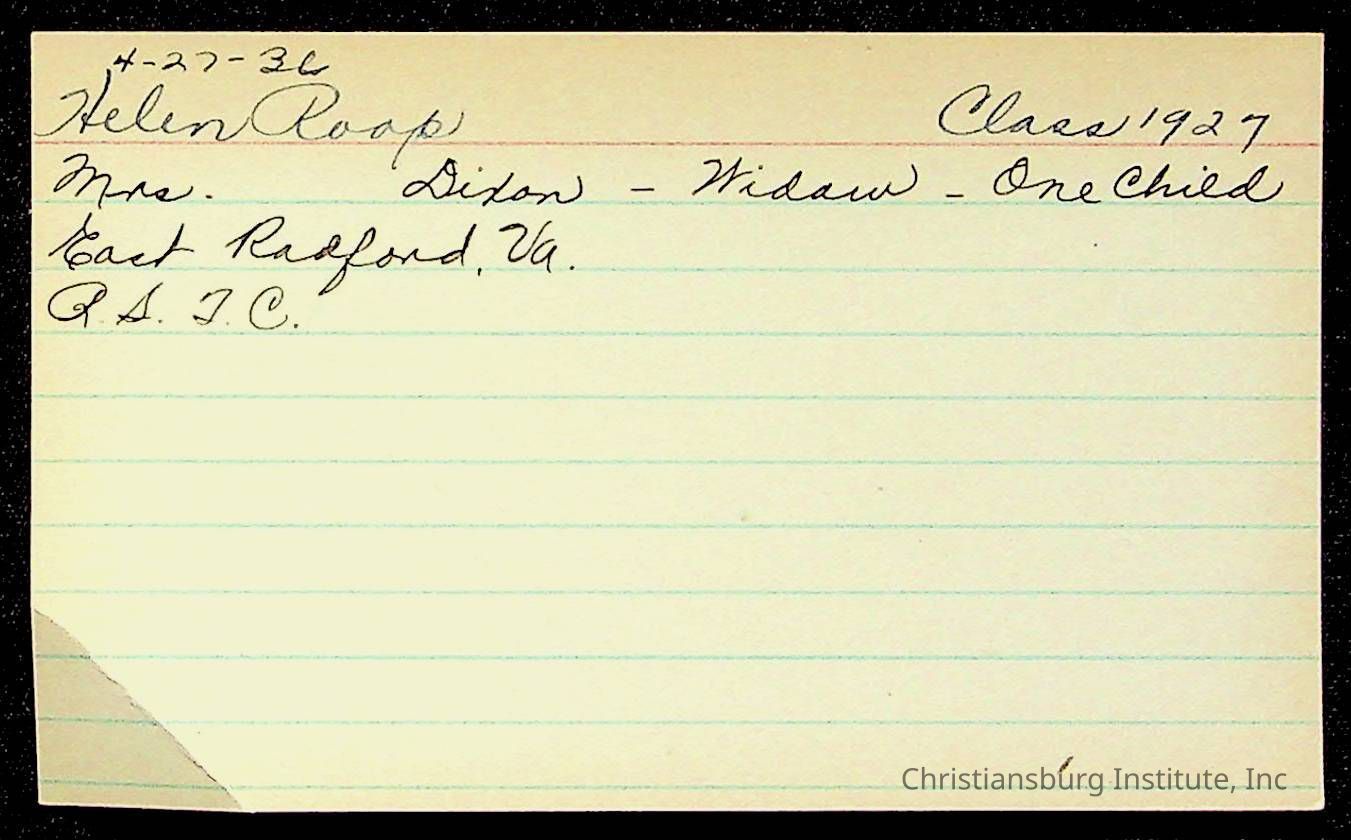 4-27-36
Helen Roop Class 1927
Mrs. Dixon - Widow - One Child
East Radford, Va.
R. S. T. C.
Christiansburg Institute, Inc